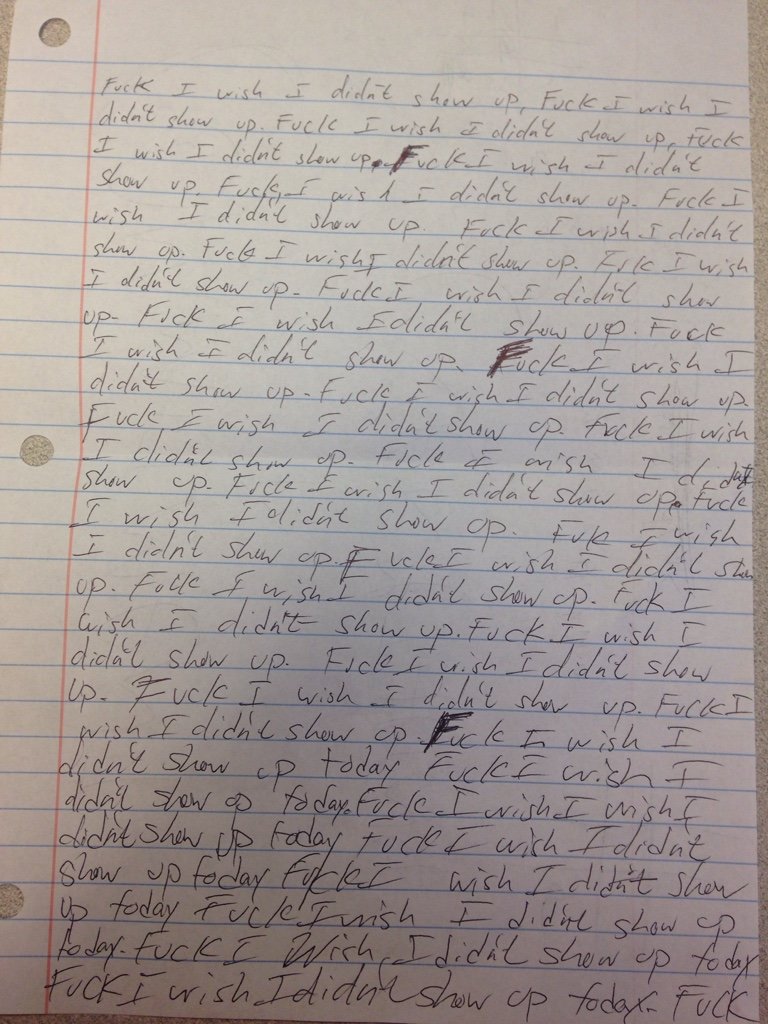 Fuck I wish I didn't show up, Fuck I wish I
didn't show up. Fuck I wish I didn't show up, Fuck
I wish I didn't show up. Fuck I wish I didn't
show up. Fuck, I wish I didn't show up. Fuck I
wish I didn't show up. Fuck I wish I didn't
show up. Fuck I wish I didn't show up. Fuck I wish
I didn't show up. Fuck I wish I didn't show
up. Fuck I wish I didn't show up. Fuck
I wish I didn't show up. Fuck I wish I
didn't show up. Fuck I wish I didn't show up.
Fuck I wish I didn't show up. Fuck I wish
I didn't show up. Fuck I wish I didn't
show up. Fuck I wish I didn't show up. Fuck
I wish I didn't show up. Fuk I wish
I didn't show up. Fuck I wish I didn't show
up. Fuck I wish I didn't show up. Fuck I
wish I didn't show up. Fuck I wish I
didn't show up. Fuck I wish I didn't show
up. Fuck I wish I didn't show up. Fuck I
wish I didn't show up. Fuck I wish I
didn't show up today Fuck I wish I
didn't show up today. Fuck I wish I wish I
didn't show up today Fuck I wish I didn't
show up today Fuck I wish I didn't show
up today Fuck I wish I didn't show up
today. Fuck I Wish I didn't show up today
Fuck I wish I didn't show up today. Fuck